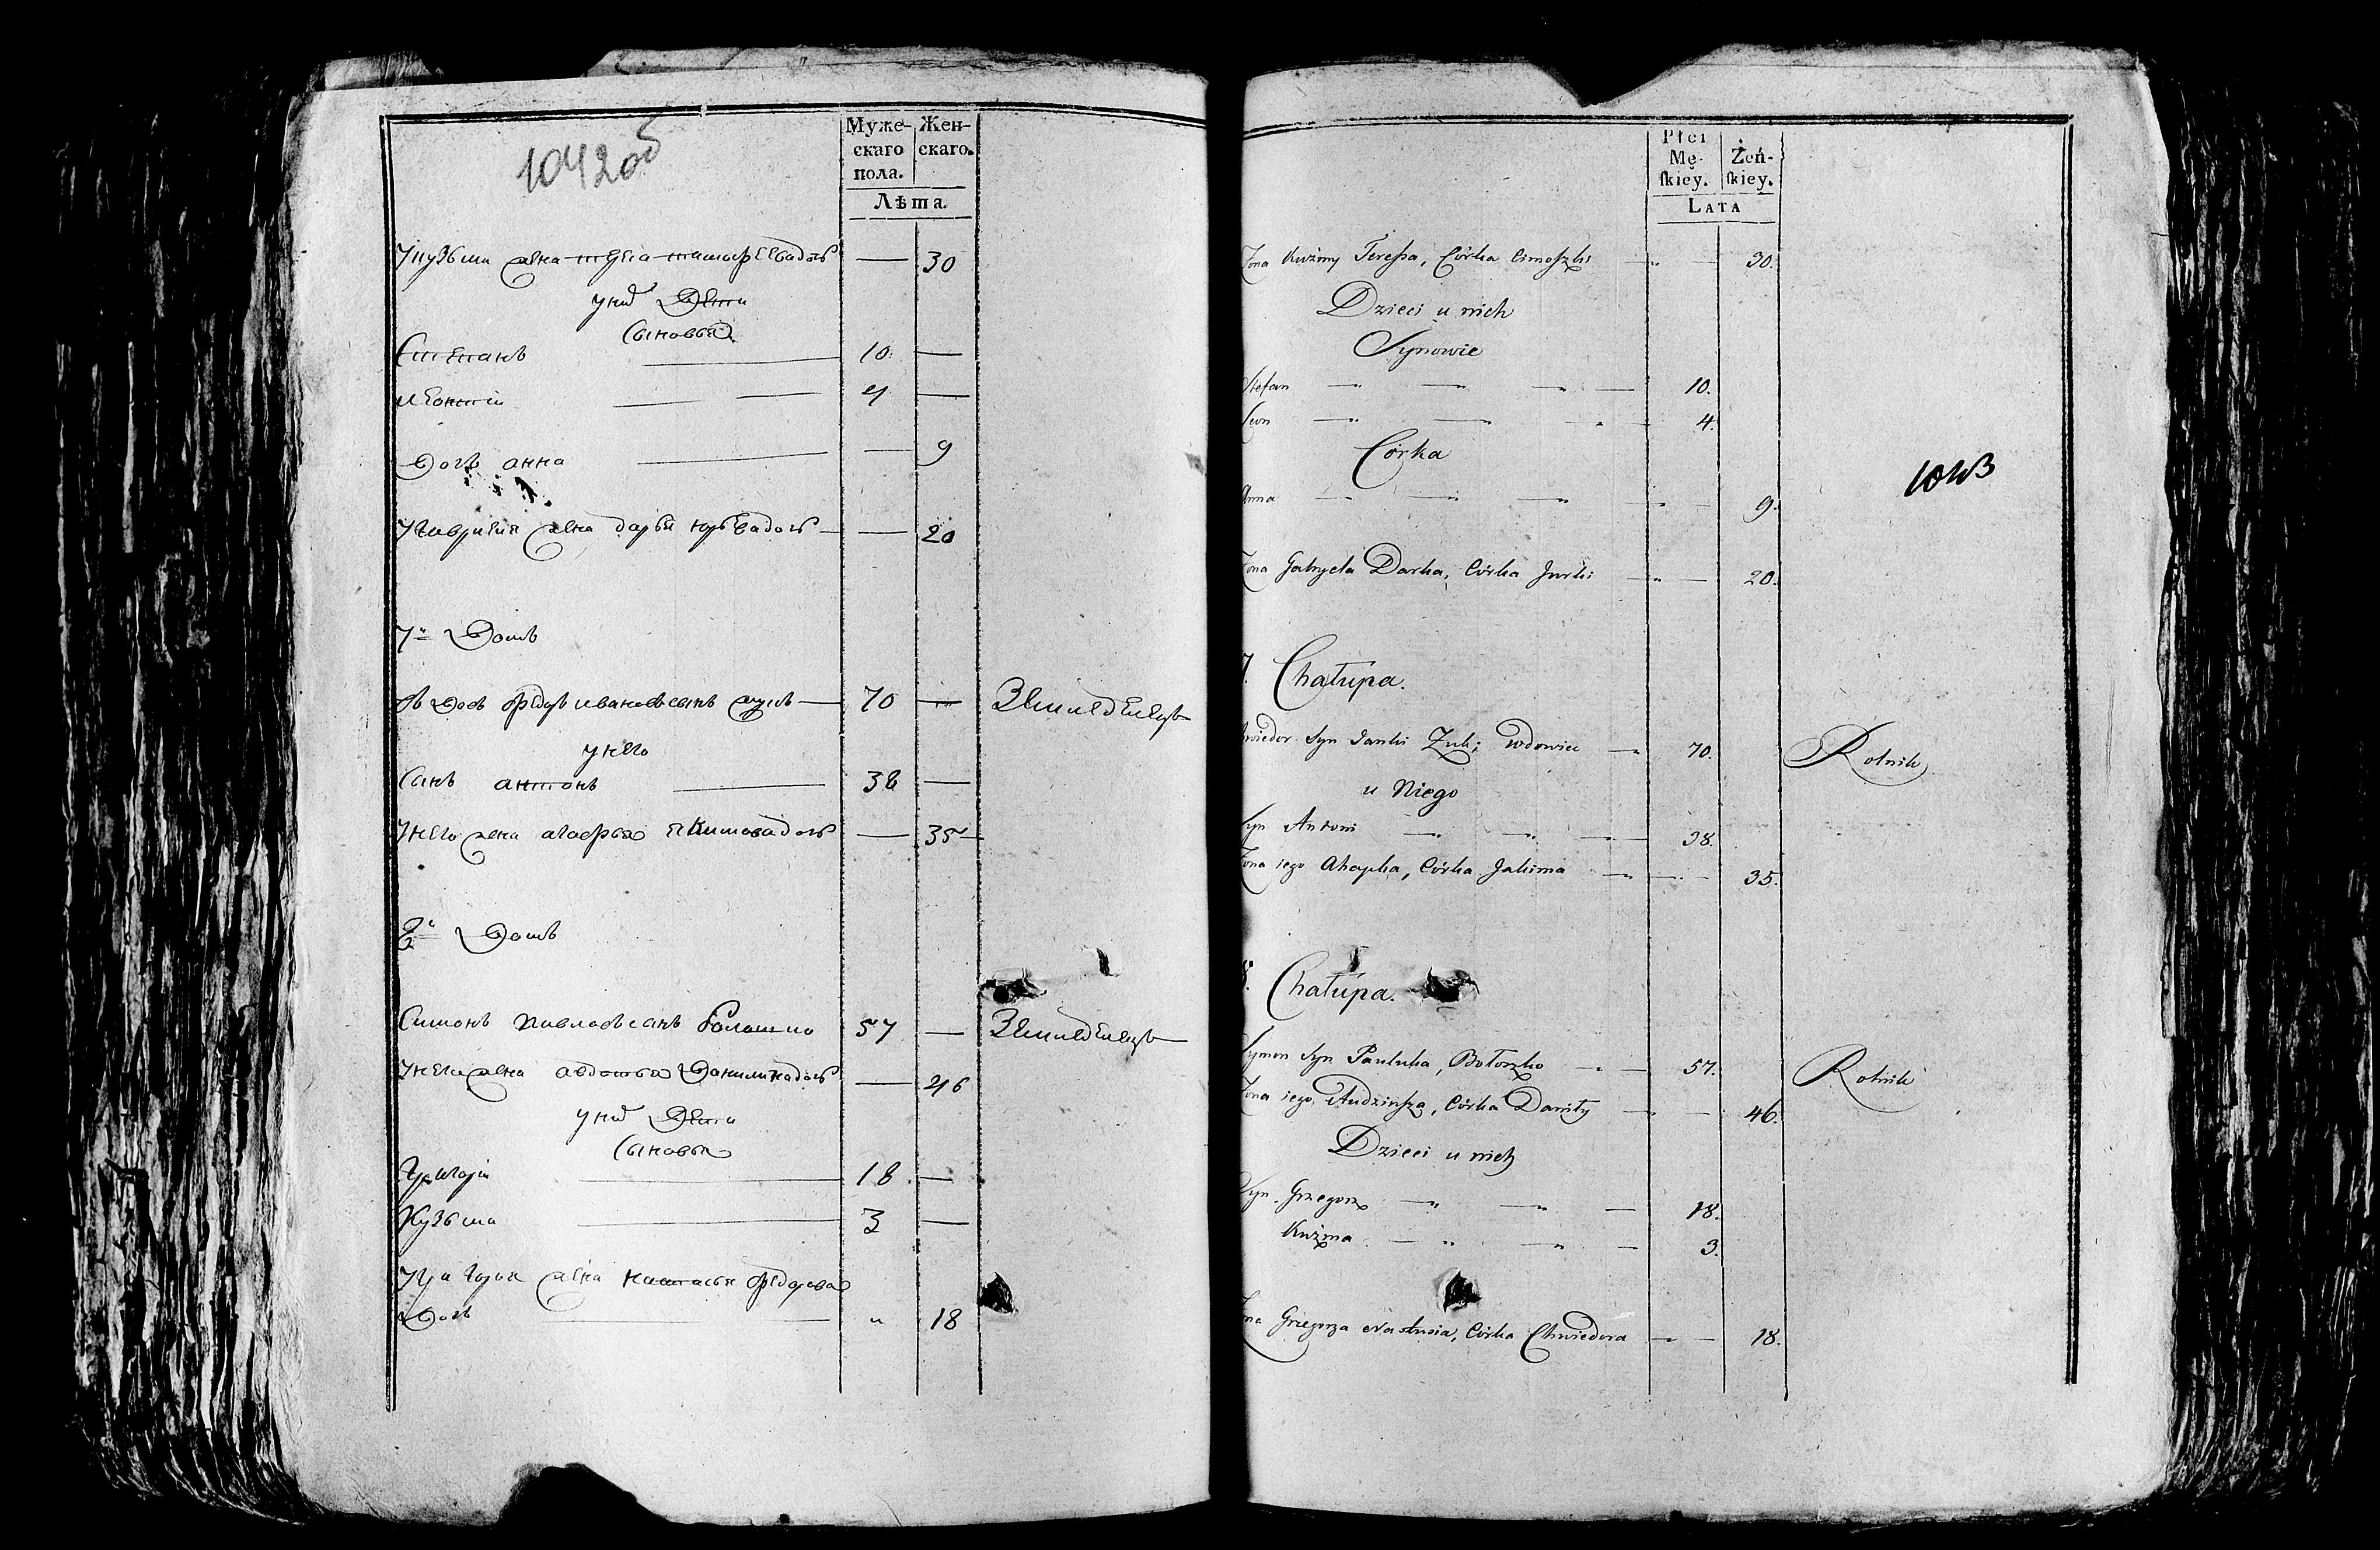 1042об
Муже-
скаго
пола.
Жен-
скаго.
Лѣта.
Укузьмы жена тереса тимофеевадочь — 30
уних Дети
Сыновья
Степанъ — 10. —
леонтій — 4 —
Дочь анна — 9
Угаврилы жена дарья юрьевадочь — — 20
7й Домъ
вдовъ федоръ ивановъсынъ жукъ — 70 — Земледелецъ
унего
Сынъ антонъ — 38 —
Унего жена агафья якимовадочь — 35
8й Домъ
Симонъ павловъсынъ Болошко 57 — Земледелецъ
унего жена авдотья Даниловадочь — 46
уних Дети
Сыновья
Григорій — 18 —
Кузьма — 3 —
Угригорья жена настасья федорова
Дочь — " 18
Płci
Mę-
skiey.
Żeń-
skiey.
LATA
1043
Żona Kuźmy Teressa, Córka Cimoszki — 30.
Dzieci u nich
Synowie
Stefan — 10.
Leon — 4.
Córka
Anna — 9.
Żona Gabryela Darka, Córka Jurki — 20.
7. Chałupa.
Chwiedor Syn Janki Żuk; wdowiec — 70. Rolnik
u Niego
Syn Antoni — 38.
Żona iego Ahapka, Córka Jakima — 35.
8. Chałupa.
Symon Syn Pauluka, Bołoszko — 57. Rolnik
Żona iego Audzinsza, Córka Daniły — 46.
Dzieci u nich
Syn Grzegorz — 18.
Kuźma — 3.
Żona Grzegorza Nastusia, Córka Chwiedora — 18.